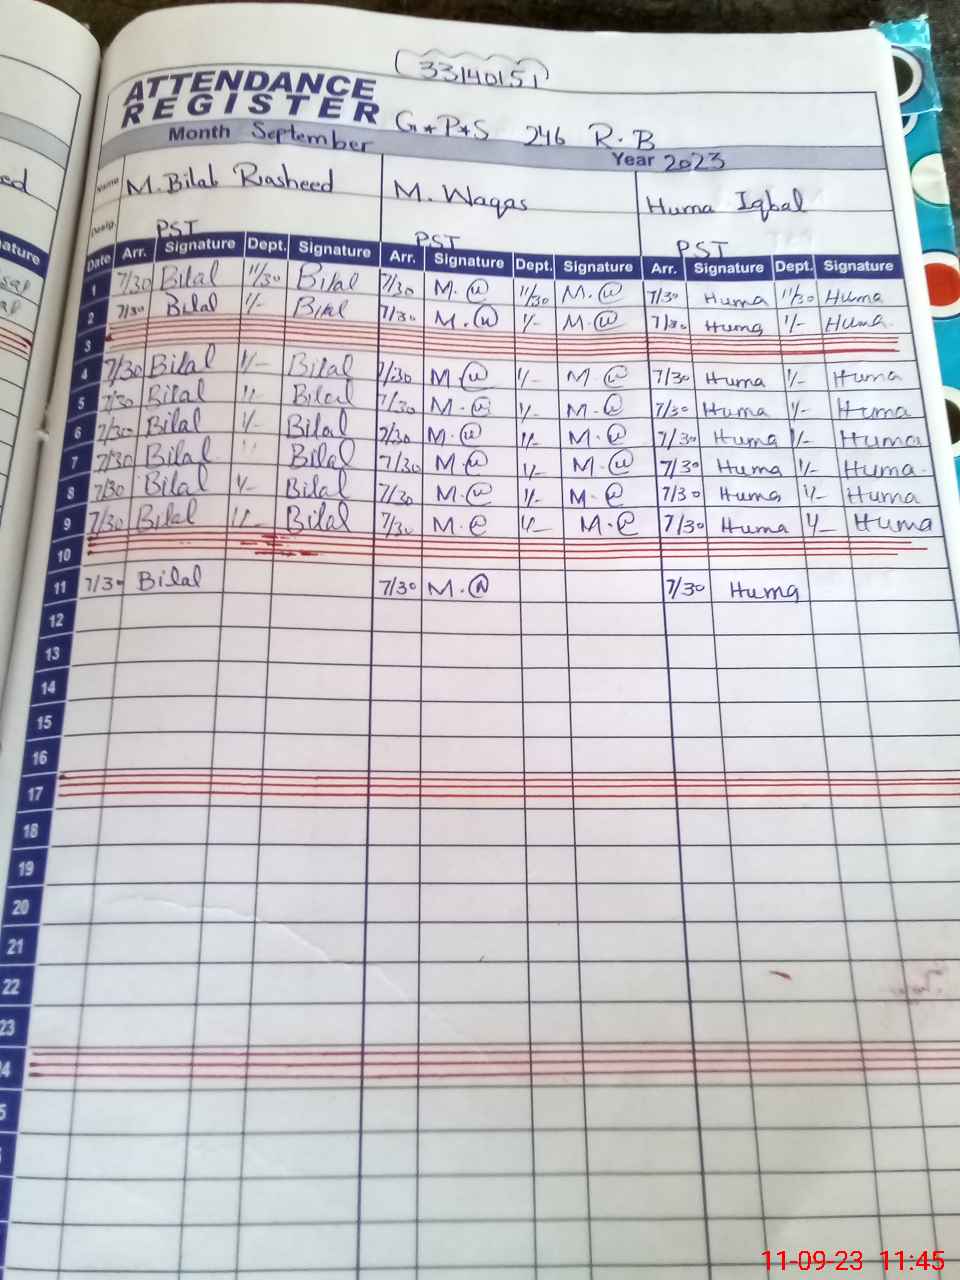 (33140151)
ATTENDANCE
REGISTER G*P*S 246 R.B
Month September Year 2023
Name M.Bilal Rasheed M. Waqas Huma Iqbal
Desig. PST PST PST
Date Arr. Signature Dept. Signature Arr. Signature Dept. Signature Arr. Signature Dept. Signature
1 7/30 Bilal 11/30 Bilal 7/30 M. 11/30 M. 7/30 Huma 11/30 Huma
2 7/30 Bilal 1/- Bilal 7/30 M. 1/- M. 7/30 Huma 1/- Huma
3
4 7/30 Bilal 1/- Bilal 7/30 M. 1/- M. 7/30 Huma 1/- Huma
5 7/30 Bilal Bilal 7/30 M. 1/- M. 7/30 Huma 1/- Huma
6 7/30 Bilal 1/- Bilal 7/30 M. 1/- M. 7/30 Huma 1/- Huma
7 7/30 Bilal Bilal 7/30 M. 1/- M. 7/30 Huma 1/- Huma
8 7/30 Bilal 1/- Bilal 7/30 M. 1/- M. 7/30 Huma 1/- Huma
9 7/30 Bilal 1/- Bilal 7/30 M. 1/- M. 7/30 Huma 1/- Huma
10
11 7/30 Bilal 7/30 M. 7/30 Huma
12
13
14
15
16
17
18
19
20
21
22
23
11-09-23 11:45